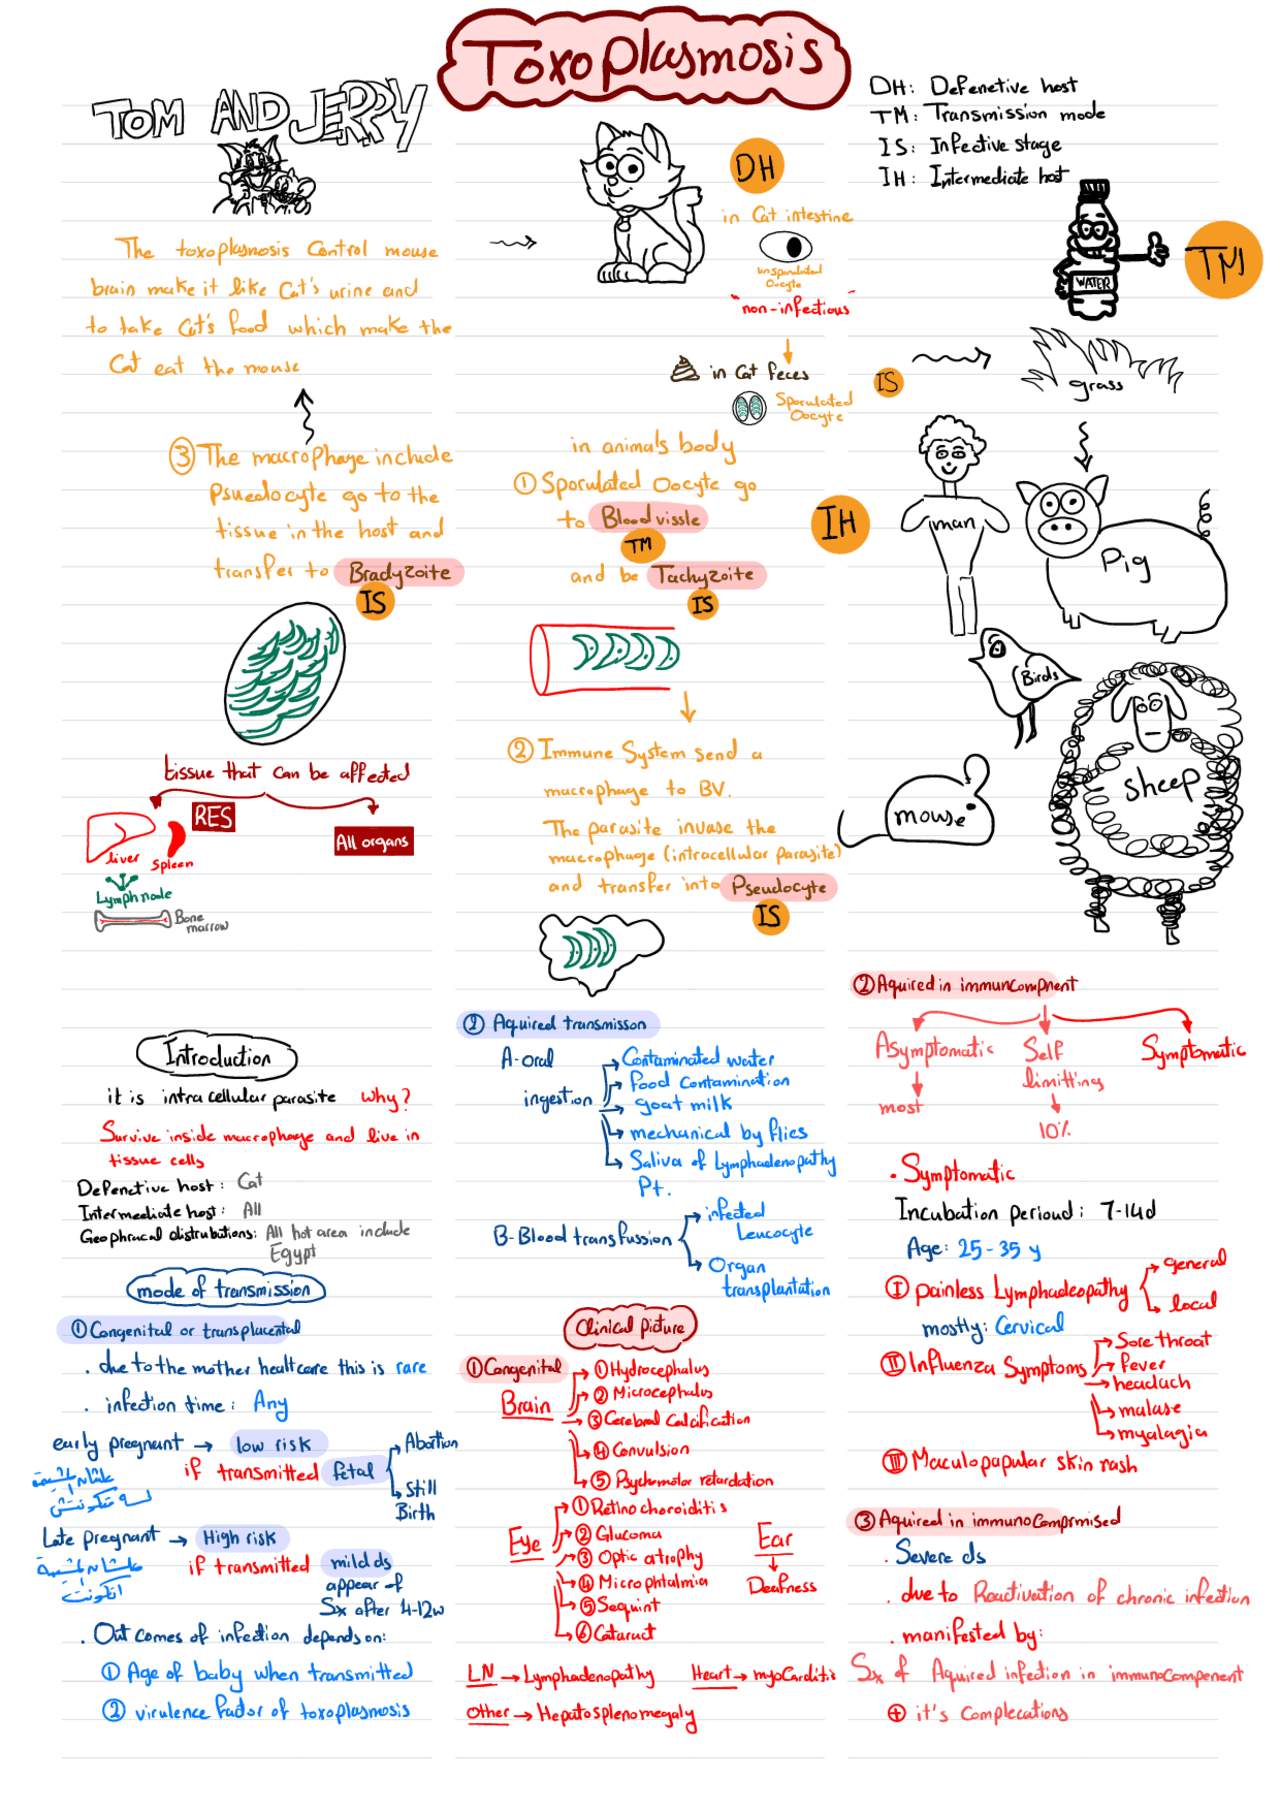 Toxoplasmosis
TOM AND JERRY
The toxoplasnosis Control mouse
brain make it like Cat's urine and
to take Cat's food which make the
Cat eat the mouse
③ The macrophage include
Psuedocyte go to the
tissue in the host and
transfer to Bradyzoite
IS
tissue that can be affected
RES
All organs
liver
Spleen
Lymph node
Bone
marrow
DH
in Cat intestine
unsporulated
Oocyte
"non-infectious"
in Cat feces
Sporulated
Oocyte
in animals body
① Sporulated Oocyte go
to Blood vissle
TM
and be Tachyzoite
IS
② Immune System send a
macrophage to BV.
The parasite invase the
macrophage (intracellular parasite)
and transfer into Pseudocyte
IS
DH: Defenetive host
TM: Transmission mode
IS: Infective stage
IH: Intermediate host
WATER
TM
IS
grass
IH
man
Pig
Birds
mouse
sheep
Introduction
it is intracellular parasite why?
Survive inside macrophage and live in
tissue cells
Defenctive host: Cat
Intermediate host: All
Geophracal distrubations: All hot area include
Egypt
mode of transmission
① Congenital or transplacental
. due to the mother healtcare this is rare
. infection time: Any
early pregnant → low risk
if transmitted fetal
Abortion
Still
Birth
Late pregnant → High risk
if transmitted mild ds
appear of
Sx after 4-12w
. Out comes of infection depends on:
① Age of baby when transmitted
② virulence factor of toxoplasmosis
② Aquired transmisson
A-oral
ingestion
Contaminated water
food contamination
goat milk
mechanical by flies
Saliva of Lymphadenopathy
Pt.
B-Blood transfussion
infected
Leucocyte
Organ
transplantation
Clinical picture
① Congenital
Brain
① Hydrocephalus
② Microcephalus
③ Cerebral Calcification
④ Convulsion
⑤ Psychomotor retardation
Eye
① Retino choroiditis
② Glucoma
③ Optic atrophy
④ Microphtalmia
⑤ Sequint
⑥ Cataract
Ear
Deafness
LN → Lymphadenopathy
Heart → myocarditis
Other → Hepatosplenomegaly
② Aquired in immuncompnent
Asymptomatic
most
Self
limitting
10%
Symptomatic
. Symptomatic
Incubation perioud: 7-14d
Age: 25-35 y
I painless Lymphadeopathy
general
local
mostly: Cervical
II Influenza Symptoms
Sore throat
fever
headach
malase
myalagia
III Maculopapular skin rash
③ Aquired in immunocompromised
. Severe ds
. due to Reactivation of chronic infection
. manifested by:
Sx of Aquired infection in immunocompenent
+ it's Complecations